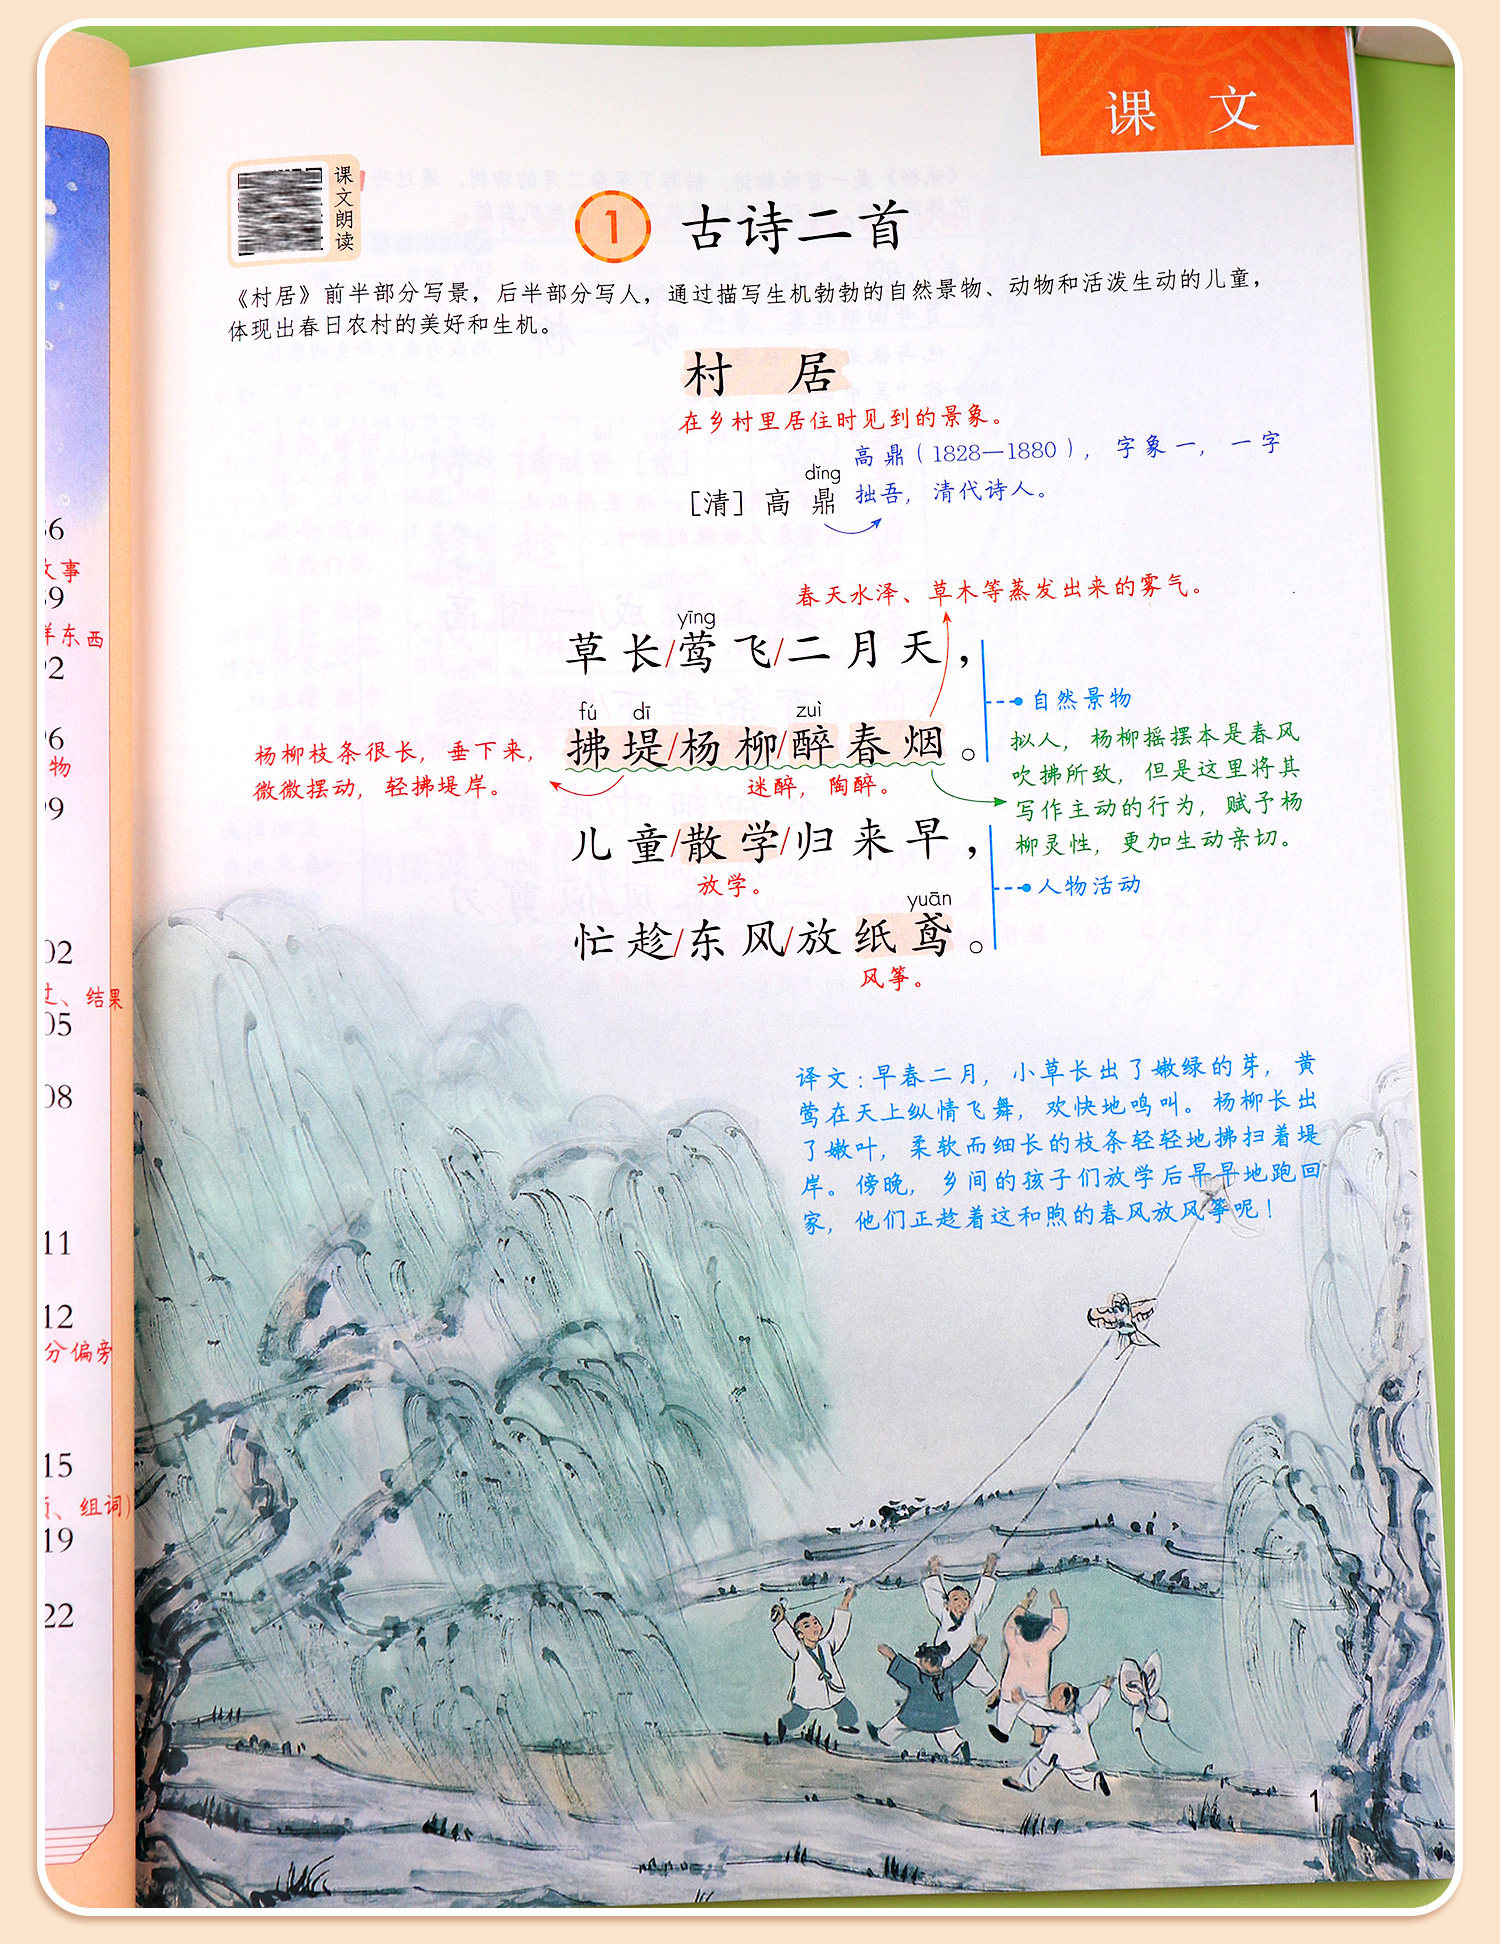 课文
课文朗读
1 古诗二首
《村居》前半部分写景，后半部分写人，通过描写生机勃勃的自然景物、动物和活泼生动的儿童，
体现出春日农村的美好和生机。
村居
在乡村里居住时见到的景象。
高鼎（1828—1880），字象一，一字
拙吾，清代诗人。
dǐng
［清］高鼎
春天水泽、草木等蒸发出来的雾气。
yīng
草长/莺飞/二月天，
自然景物
fú dī zuì
拂堤/杨柳/醉春烟。
杨柳枝条很长，垂下来，
微微摆动，轻拂堤岸。
迷醉，陶醉。
拟人，杨柳摇摆本是春风
吹拂所致，但是这里将其
写作主动的行为，赋予杨
柳灵性，更加生动亲切。
儿童/散学/归来早，
放学。
人物活动
yuān
忙趁/东风/放纸鸢。
风筝。
译文：早春二月，小草长出了嫩绿的芽，黄
莺在天上纵情飞舞，欢快地鸣叫。杨柳长出
了嫩叶，柔软而细长的枝条轻轻地拂扫着堤
岸。傍晚，乡间的孩子们放学后早早地跑回
家，他们正趁着这和煦的春风放风筝呢！
1
事
东西
物
、结果
分偏旁
、组词）
02
05
08
11
12
15
19
22